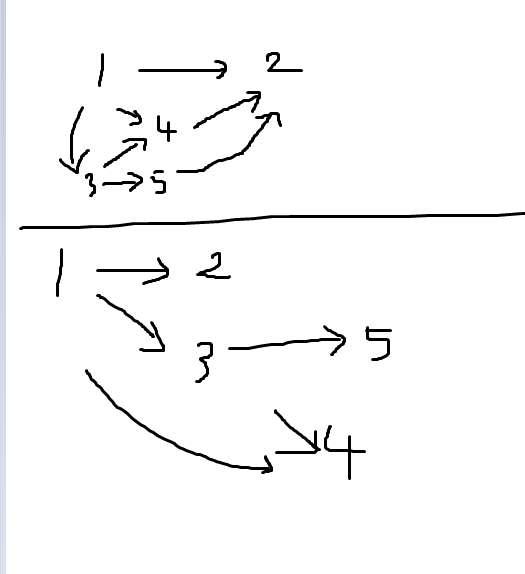 1 → 2
4
3 → 5
1 → 2
3 → 5
4